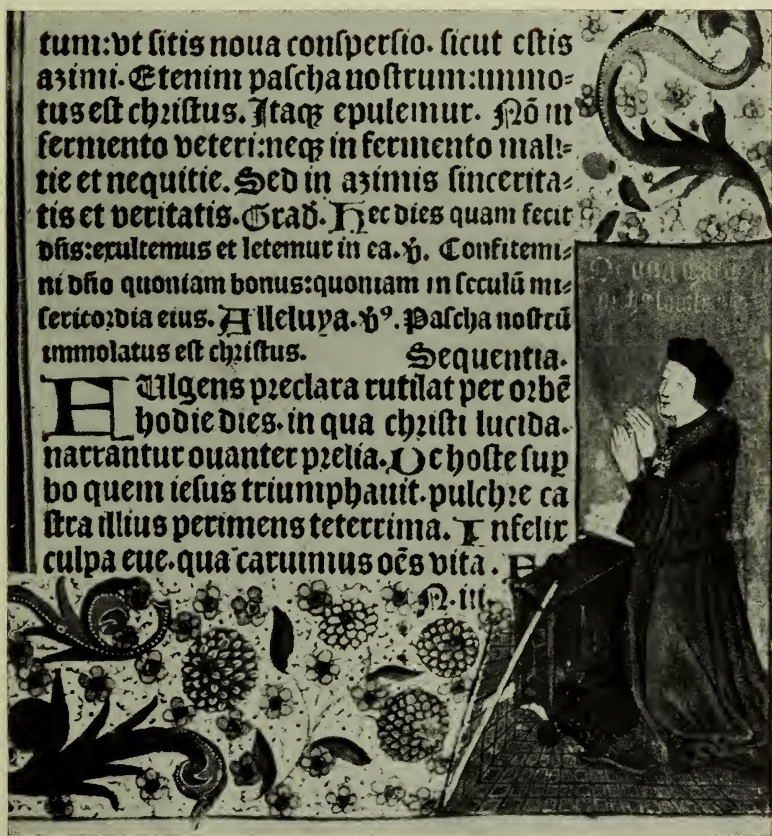 tum:vt sitis noua conspersio. sicut estis
azimi. Etenim pascha nostrum:immo⸗
tus est christus. Itaqꝫ epulemur. Nō in
fermento veteri:neqꝫ in fermento mali⸗
tie et nequitie. Sed in azimis sincerita⸗
tis et veritatis. Grad̄. Hec dies quam fecit
dn̄s:exultemus et letemur in ea. ℣. Confitemi⸗
ni dn̄o quoniam bonus:quoniam in seculū mi⸗
sericordia eius. Alleluya. ℣ꝰ. Pascha nostrū
immolatus est christus. Sequentia.
Fulgens preclara rutilat per orbē
hodie dies. in qua christi lucida.
narrantur ouanter prelia. De hoste suꝑ
bo quem iesus triumphauit. pulchre ca
stra illius perimens teterrima. Infelix
culpa eue. qua caruimus oēs vita.
N.iii